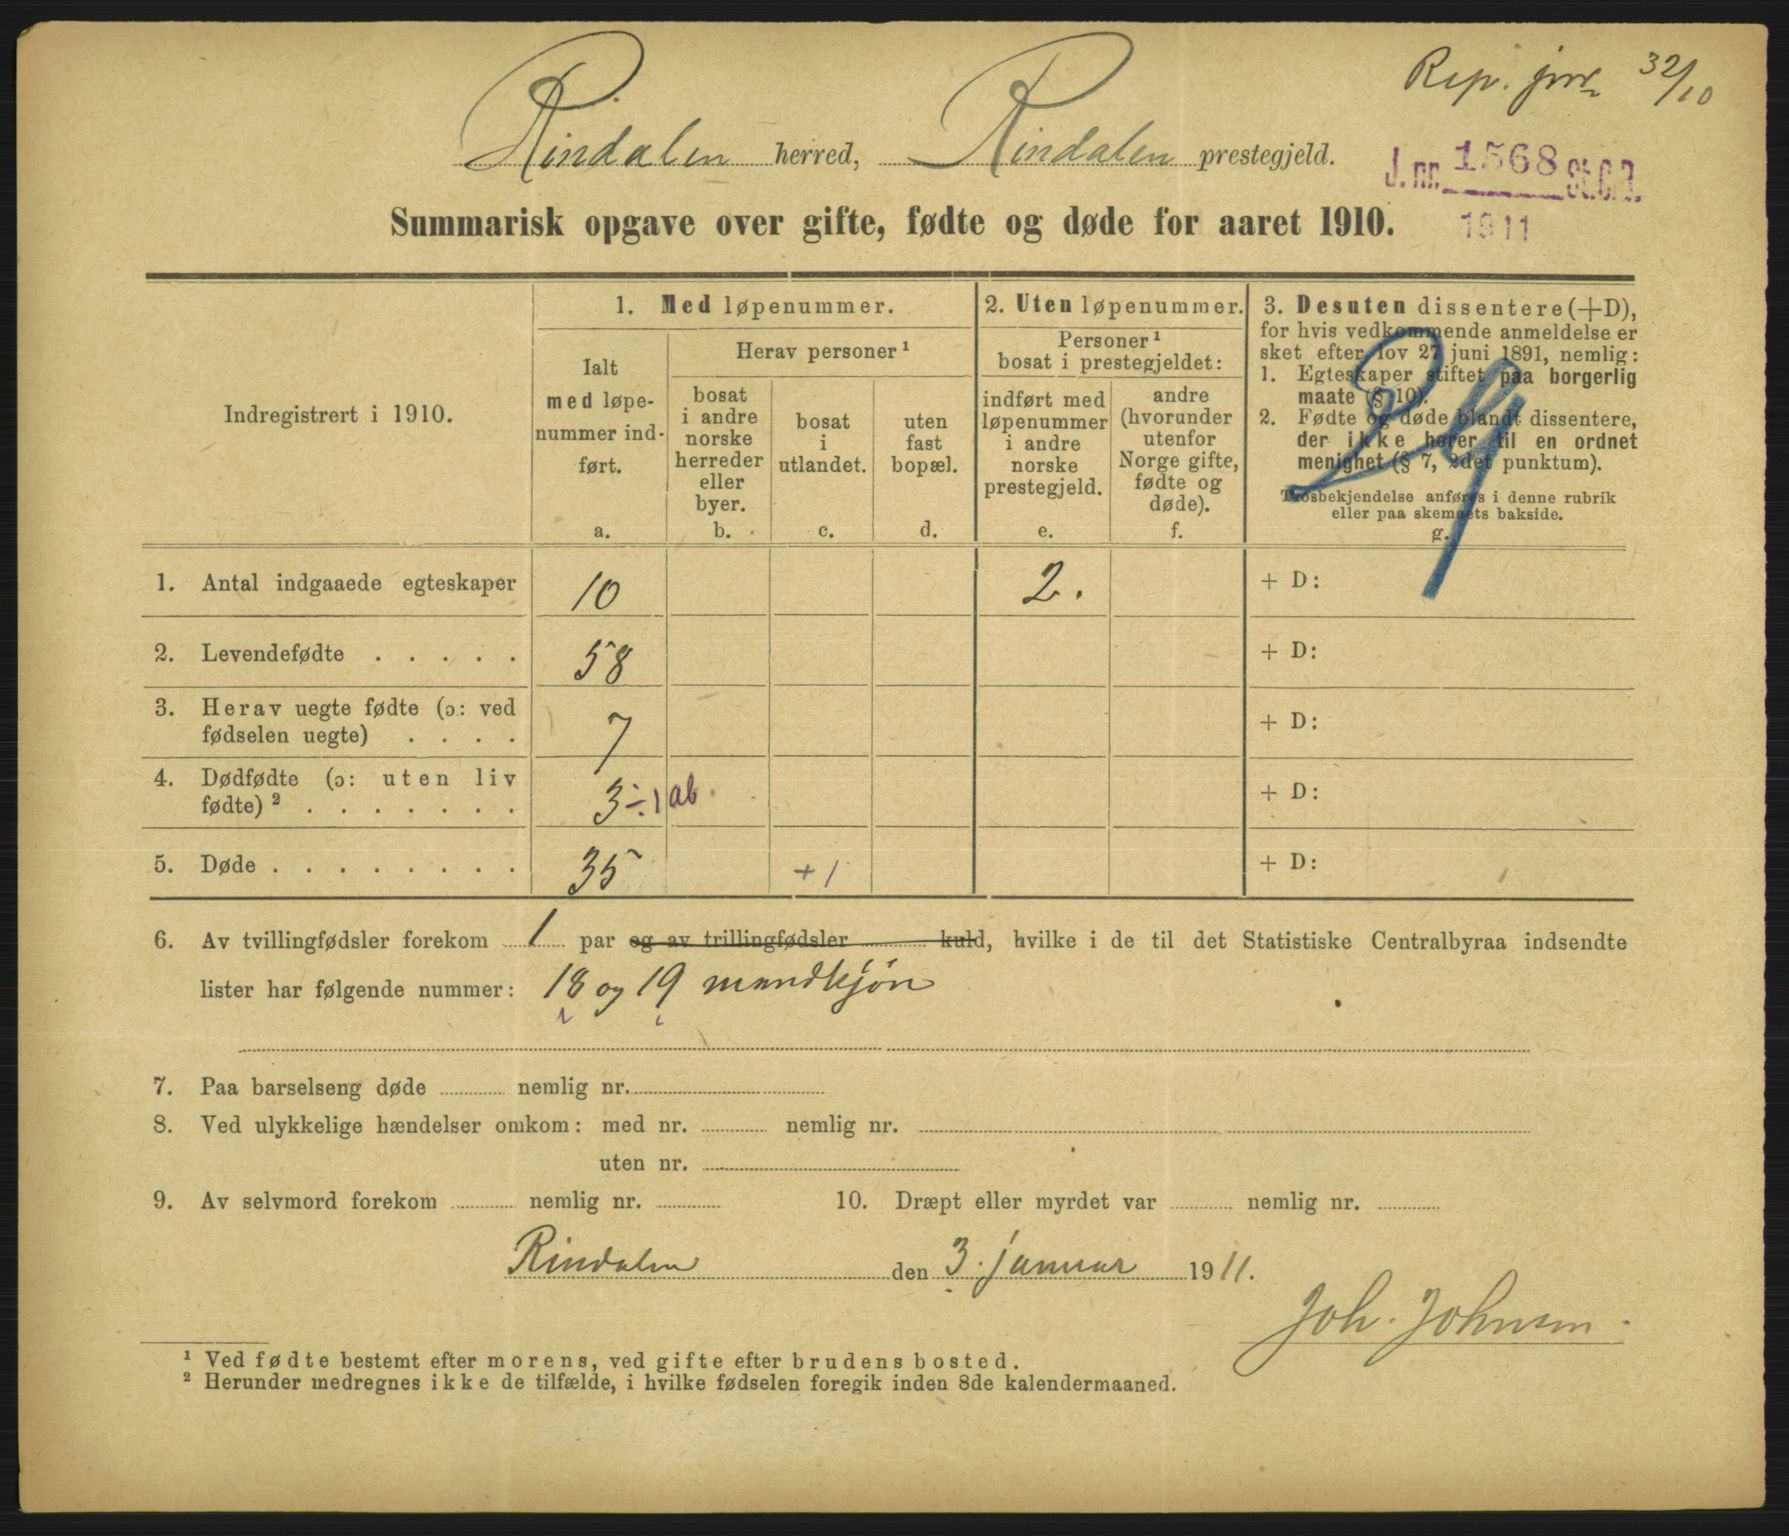 Rep. 32/10
Rindalen herred, Rindalen prestegjeld.
J. nr. 1568 St.C.B.
1911
Summarisk opgave over gifte, fødte og døde for aaret 1910.
Indregistrert i 1910.
1. Med løpenummer.
Ialt
med løpe-
nummer ind-
ført.
a.
Herav personer ¹
bosat
i andre
norske
herreder
eller
byer.
b.
bosat
i
utlandet.
c.
uten
fast
bopæl.
d.
2. Uten løpenummer.
Personer ¹
bosat i prestegjeldet:
indført med
løpenummer
i andre
norske
prestegjeld.
e.
andre
(hvorunder
utenfor
Norge gifte,
fødte og
døde).
f.
3. Desuten dissentere (+D),
for hvis vedkommende anmeldelse er
sket efter lov 27 juni 1891, nemlig:
1. Egteskaper stiftet paa borgerlig
maate (§ 10).
2. Fødte og døde blandt dissentere,
der ikke hører til en ordnet
menighet (§ 7, 2det punktum).
Trosbekjendelse anføres i denne rubrik
eller paa skemaets bakside.
g.
1. Antal indgaaede egteskaper 10 2. + D:
2. Levendefødte . . . . . 58 + D:
3. Herav uegte fødte (ɔ: ved
fødselen uegte) . . . . 7 + D:
4. Dødfødte (ɔ: uten liv
fødte) ² . . . . . . . 3 ÷ 1 ab. + D:
5. Døde . . . . . . . . 35 + 1 + D:
6. Av tvillingfødsler forekom 1 par og av trillingfødsler kuld, hvilke i de til det Statistiske Centralbyraa indsendte
lister har følgende nummer: 18 og 19 mandkjøn
7. Paa barselseng døde nemlig nr.
8. Ved ulykkelige hændelser omkom: med nr. nemlig nr.
uten nr.
9. Av selvmord forekom nemlig nr. 10. Dræpt eller myrdet var nemlig nr.
Rindalen den 3. januar 1911.
Joh. Johnsen.
¹ Ved fødte bestemt efter morens, ved gifte efter brudens bosted.
² Herunder medregnes ikke de tilfælde, i hvilke fødselen foregik inden 8de kalendermaaned.